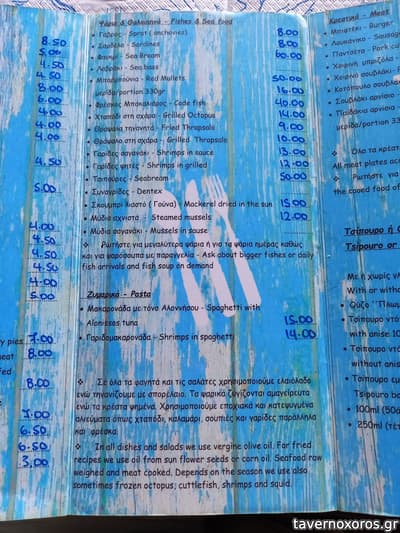 Ψάρια & Θαλασσινά - Fishes & Sea food
Γαύρος - Sprat (anchovies) 8.00
Σαρδέλα - Sardines 8.00
- Sea Bream 60.00
Λαβράκι - Sea bass
Μπαρμπούνια - Red Mullets 50.00
μερίδα/portion 330gr 16.00
Φρέσκος Μπακαλιάρος - Code fish 40.00
Χταπόδι στη σχάρα - Grilled Octopus 14.00
Θράψαλα τηγανητά - Fried Thrapsala 9.00
Θράψαλο στη σχάρα - Grilled Thrapsala 10.00
Γαρίδες σαγανάκι - Shrimps in sauce 13.00
Γαρίδες ψητές - Shrimps in grilled 12.00
Τσιπούρες - Seabream 50.00
Συναγρίδες - Dentex
Σκουμπρί λιαστό (Γούνα) - Mackerel dried in the sun 15.00
Μύδια αχνιστά - Steamed mussels 12.00
Μύδια σαγανάκι - Mussels in sause
Ρωτήστε για μεγαλύτερα ψάρια ή για τα ψάρια ημέρας καθώς
και για ψαρόσουπα με παραγγελία - Ask about bigger fishes or daily
fish arrivals and fish soup on demand
Ζυμαρικά - Pasta
Μακαρονάδα με τόνο Αλοννήσου - Spaghetti with
Alonissos tuna 15.00
Γαριδομακαρονάδα - Shrimps in spaghetti 14.00
Σε όλα τα φαγητά και τις σαλάτες χρησιμοποιούμε ελαιόλαδο
ενώ τηγανίζουμε με σπορέλαιο. Τα ψαρικά ζυγίζονται αμαγείρευτα
ενώ τα κρέατα ψημένα. Χρησιμοποιούμε εποχιακά και κατεψυγμένα
αλιεύματα όπως χταπόδι, καλαμάρι, σουπιές και γαρίδες παράλληλα
και φρέσκα
In all dishes and salads we use vergine olive oil. For fried
recipes we use oil from sun flower seeds or corn oil. Seafood raw
weighed and meat cooked. Depends on the season we use also
sometimes frozen octopus, cuttlefish, shrimps and squid.
8.50
5.00
4.50
4.50
8.00
6.00
4.00
4.00
4.00
4.50
5.00
4.00
4.50
4.50
4.50
4.00
5.00
pies 7.00
meat 8.00
8.00
7.00
6.50
6.50
3.00
Κρεατικά - Meat
Μπιφτέκι - Burger
Λουκάνικο - Sausage
Πανσέτα - Pork
Χοιρινή μπριζόλα
Χοιρινό σουβλάκι - P
Κοτόπουλο σουβλάκι
Σουβλάκι αρνίσιο
Παιδάκια αρνίσια
μερίδα/portion 33
Όλα τα κρέα
All meat plates
the cooed food of
Τσίπουρο ή
Tsipouro or
Με ή χωρίς
With or witho
Ούζο
Τσίπουρο
with anise 10
Τσίπουρο
without anise
Τσίπουρο εμ
Tsipouro bo
100ml (50
250ml
tavernoxoros.gr